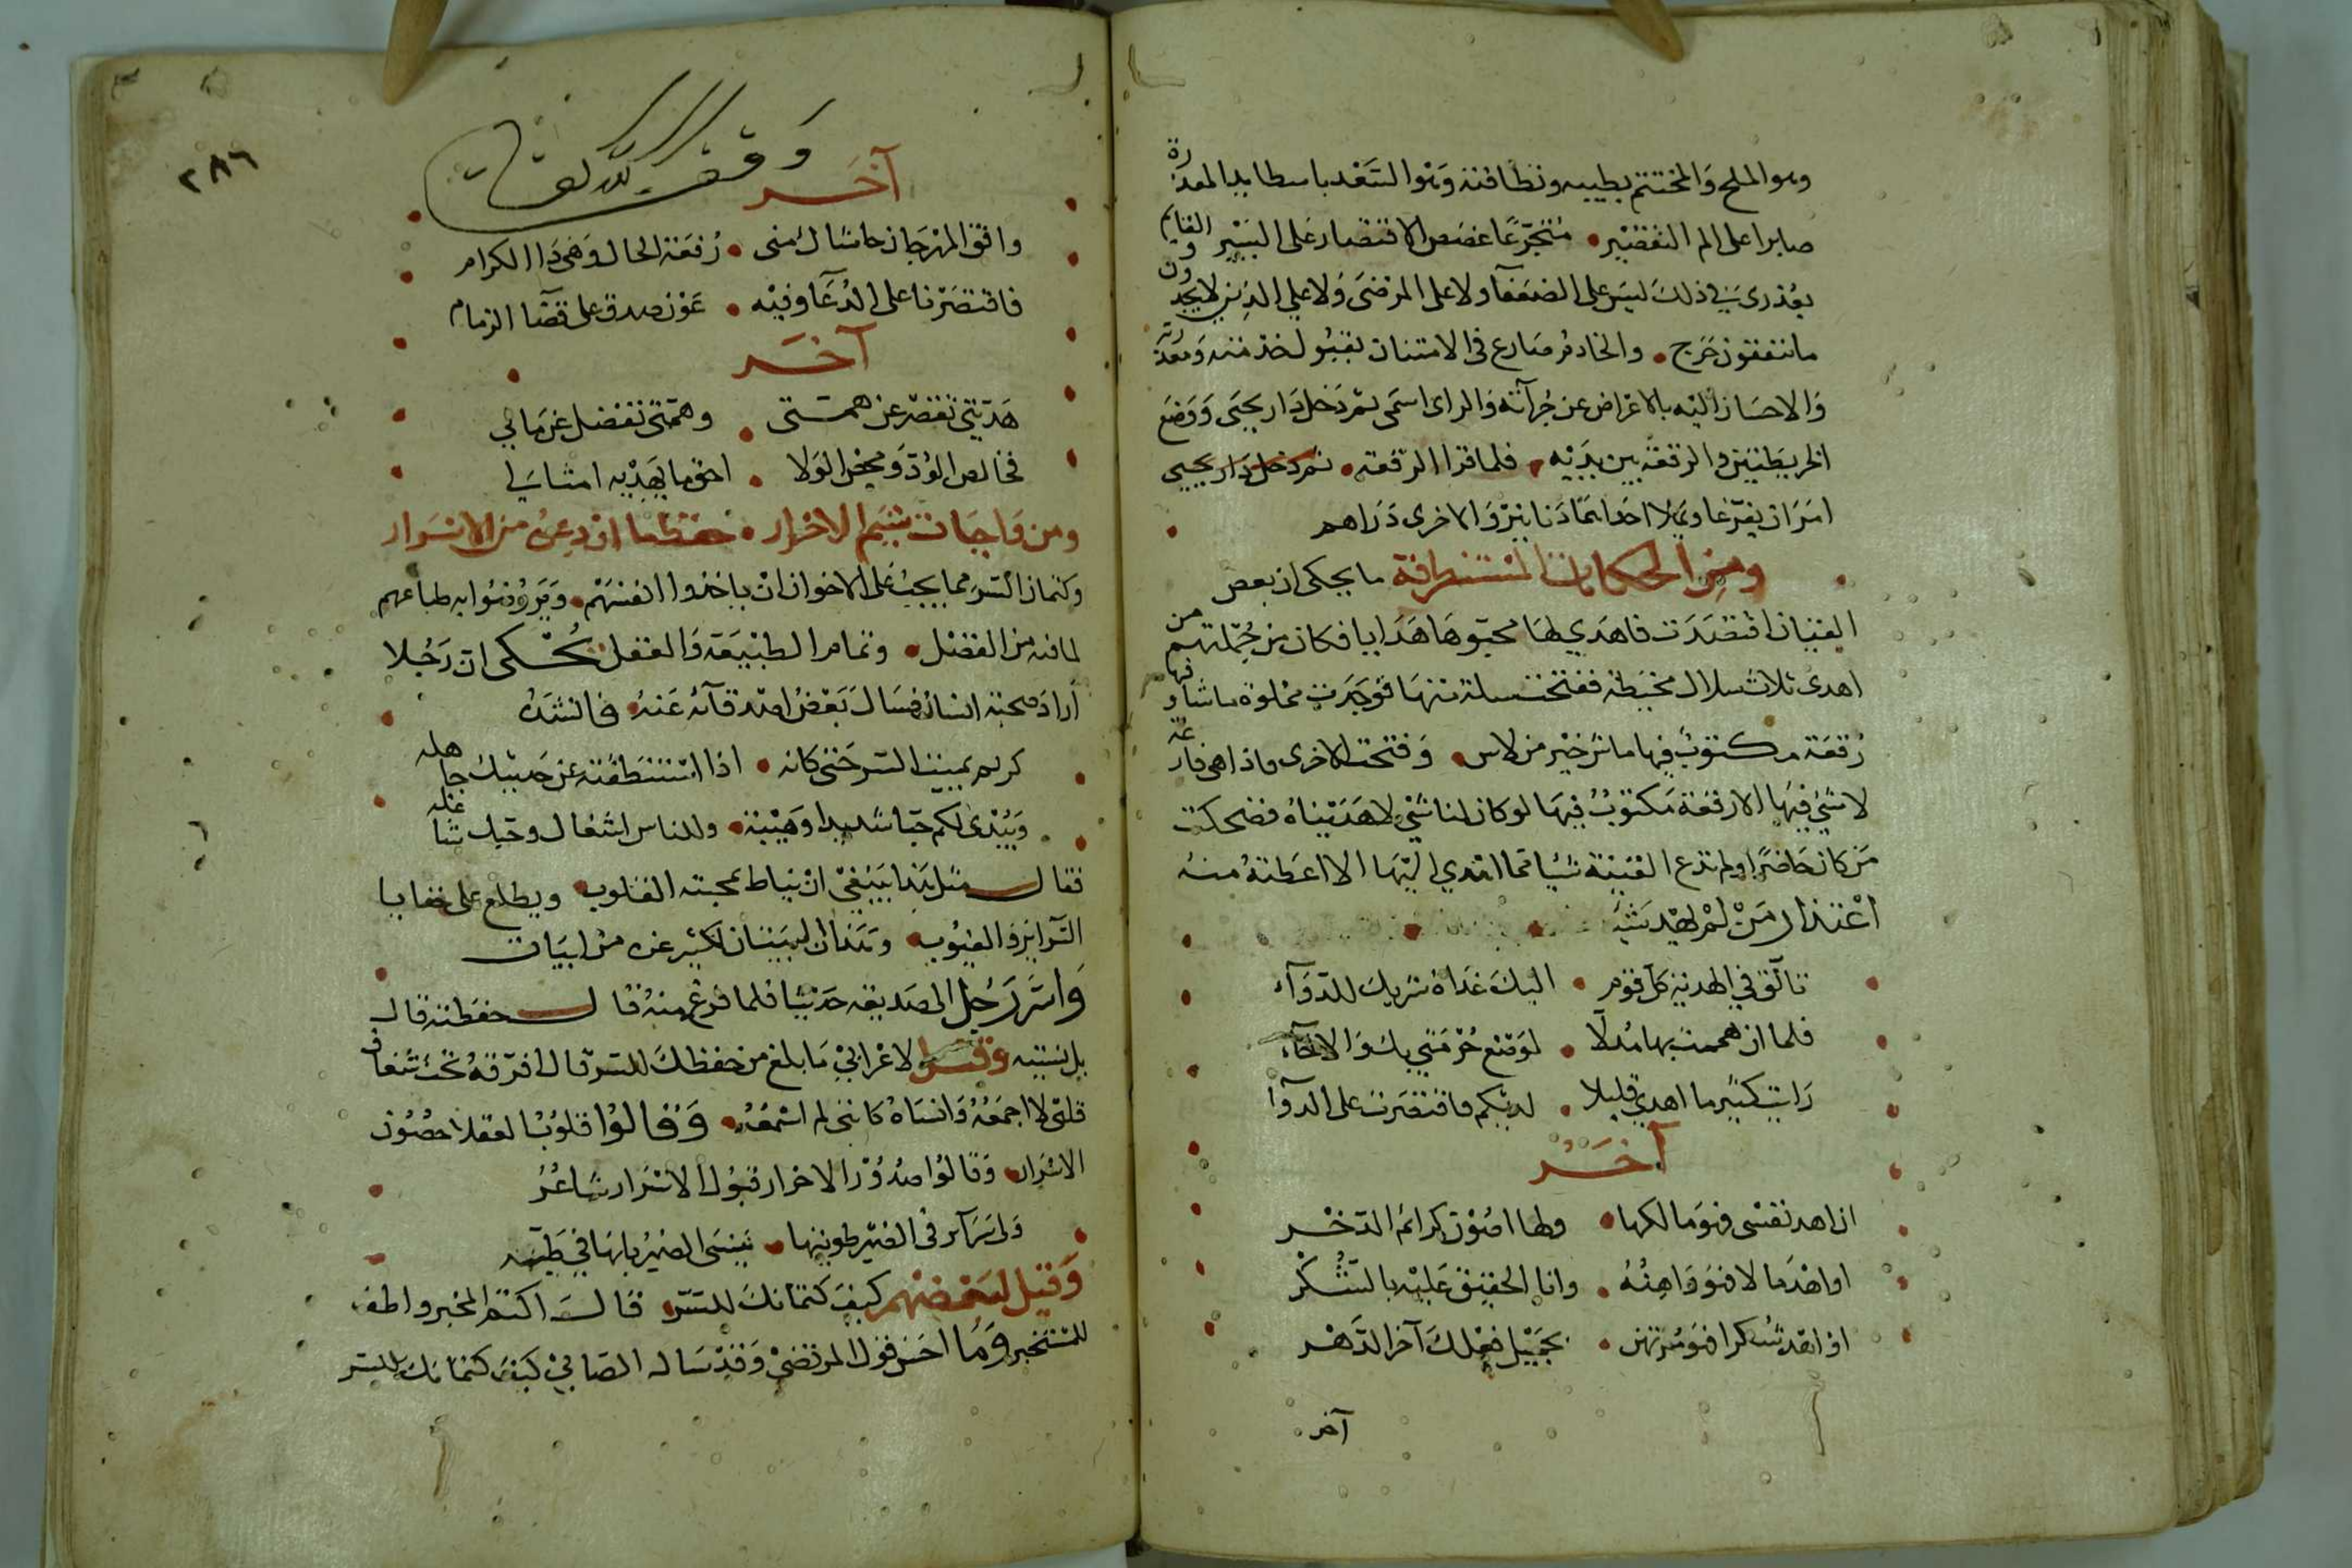 وهو الملح والمختتم بطيبه ونظافته وهو السعد باسطا يد المعذرة
صابرا على الم التقصير متجرعا غصص الاقتصار على اليسير والقايم
بعذري في ذلك ليس على الضعفآ ولا على المرضى ولا على الذين لا يجدون
ما ينفقون حرج والخادم ضارع في الامتنان بقبول خدمته ومعذرته
والاحسان اليه بالاعراض عن جرآته والراى اسمى ثم دخل دار يحيى ووضع
الخريطتين والرقعة بين يديه فلما قرا الرقعة ثم دخل دار يحيى
امر ان يفرغا ويملا احداهما دنانير والاخرى دراهم
ومن الحكايات المستظرفة ما يحكى ان بعض
القينان افتصدت فاهدى لها محبوها هدايا فكان من جملتهم من
اهدى ثلاث سلال مخيطة ففتحت سلة منها فوجدت مملوة ماشا وفيها
رقعة مكتوب فيها ماش خير من لاس وفتحت الاخرى فاذا هى فارغة
لا شئ فيها الا رقعة مكتوب فيها لو كان لنا شئ لاهديناه فضحكت
من كان حاضرا ولم تدع القينة شيا مما اهدي اليها الا اعطته منه
اعتذار من لم يهد شيا
تآلق في الهدية كل قوم اليك غداة شربك للدوآء
فلما ان هممت بها مدلا لموضع حرمتي بك والاخآء
رايت كثير ما اهدي قليلا لديكم فاقتصرت على الدعآ
آخر
ان اهد نفسى فهو مالكها ولها اصون كرائم الذخر
او اهد مالا فهو واهبه وانا الحقيق عليه بالشكر
او اهد شكرا فهو مرتهن بجميل فعلك آخر الدهر
آخر
وقف لله تعالى
٢٨٦
آخر
وافق المهرجان حاشاك منى رقعة الحال وهى دا الكرام
فاقتصرنا على الدعآ وفيه عون صدق على قضآ الذمام
آخر
هديتي تقصر عن همتى وهمتى تفضل عن مالي
فخالص الود ومحض الولا احق ما يهديه امثالي
ومن واجبات شيم الاحرار حفظ ما اودعن من الاسرار
وكتمان السر مما يجب على الاخوان ان ياخذوا انفسهم ويروضوا به طباعهم
لما فيه من الفضل وتمام الطبيعة والعقل يحكى ان رجلا
اراد صحبة انسان فسال بعض اصدقآئه عنه فانشده
كريم يميت السر حتى كانه اذا استنطقته عن حديثك جاهله
ويبدى لكم حبا شديدا وهيبة وللناس اشغال وحبك شاغله
فقال مثل هذا ينبغي ان يناط بمحبته القلوب ويطلع على خفايا
السرآير والعيوب وهذان البيتان لكثير عزه من ابيات
واسر رجل الى صديقه حديثا فلما فرغ منه قال حفظته قال
بل نسيته وقيل لاعرابي ما بلغ من حفظك للسر قال افرقه تحت شغاف
قلبى لا اجمعه وانساه كانى لم اسمعه وقالوا قلوب العقلا حصون
الاسرار وقالوا صدور الاحرار قبول الاسرار شاعر
ولى سرآئر في الضمير طويتها نسى الضمير بانها في طيه
وقيل لبعضهم كيف كتمانك للسر قال اكتم المخبر واطف
للمستخبر وما احسن قول المرتضى وقد ساله الصابي كيف كتمانك للسر